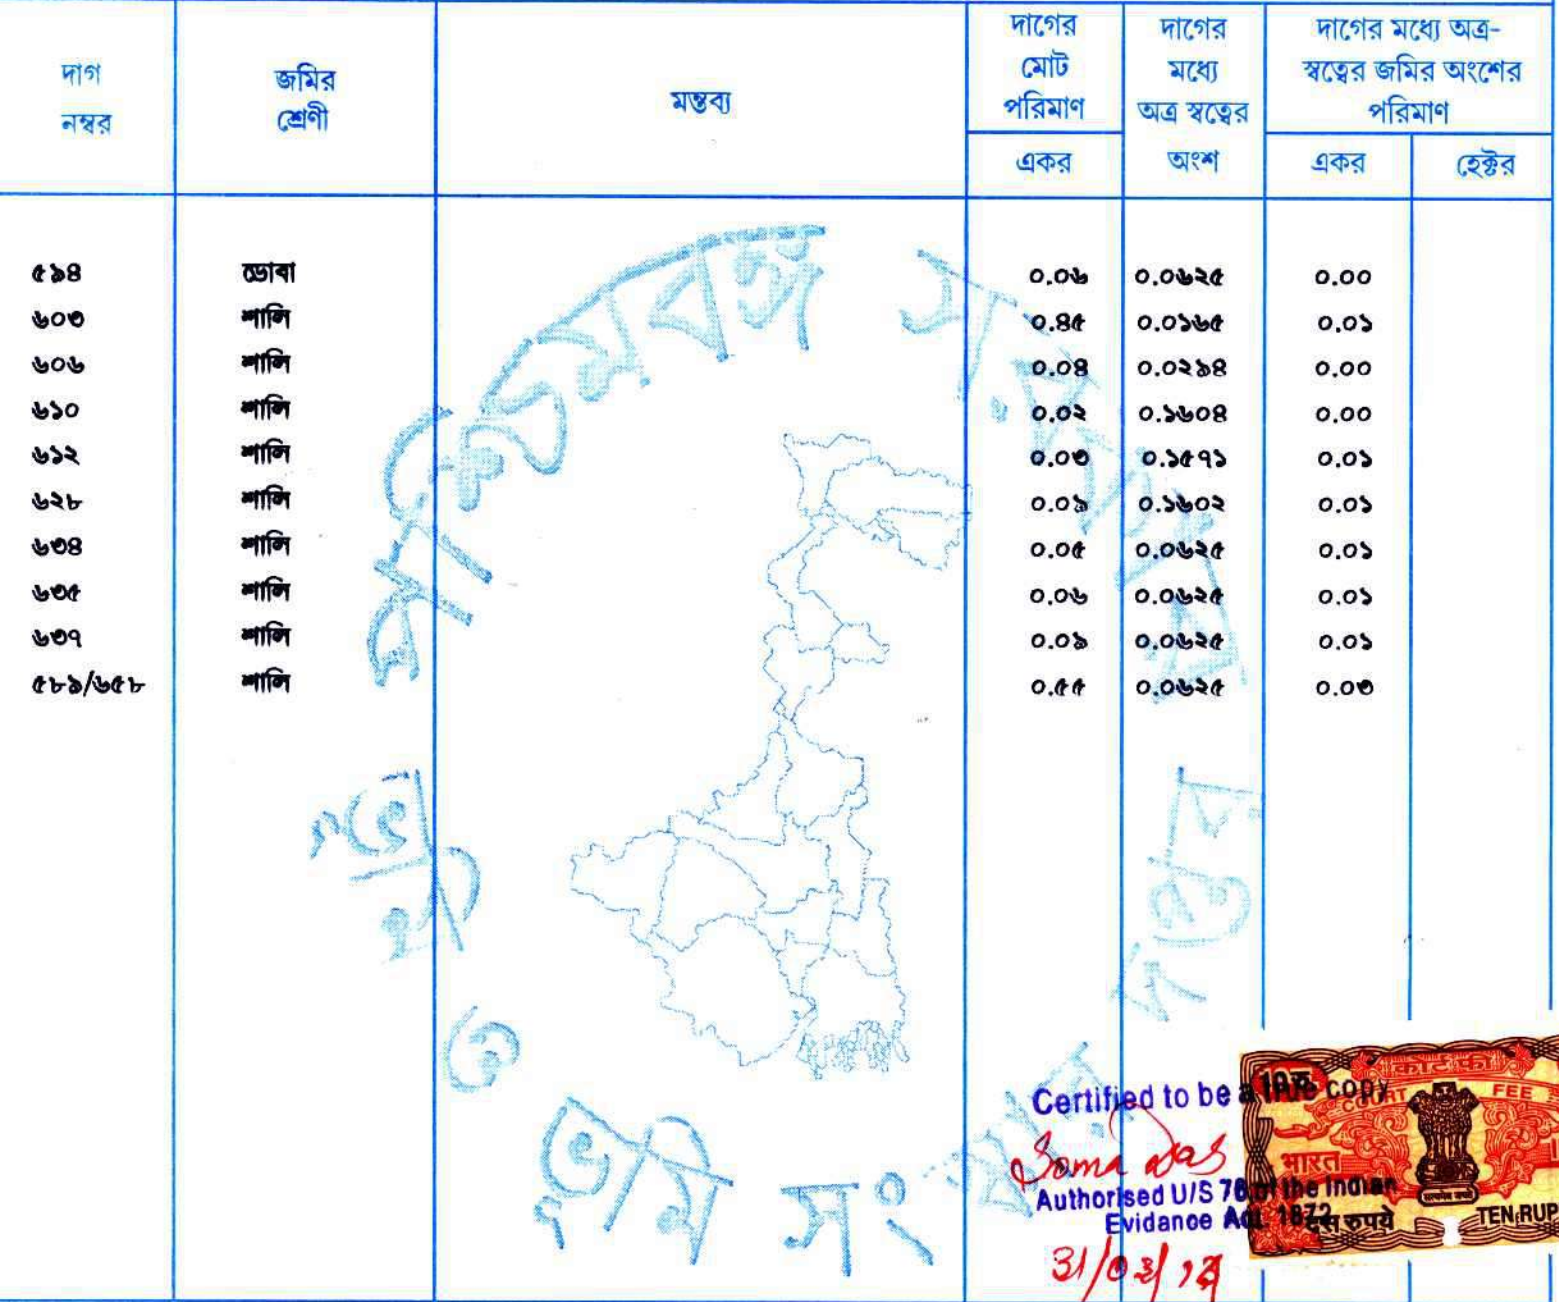 দাগ নম্বর | জমির শ্রেণী | মন্তব্য | দাগের মোট পরিমাণ | দাগের মধ্যে অত্র স্বত্বের অংশ | দাগের মধ্যে অত্র-স্বত্বের জমির অংশের পরিমাণ
একর | একর | হেক্টর
৫৯৪ ডোবা ০.০৬ ০.০৬২৫ ০.০০
৬০৩ শালি ০.৪৫ ০.০১৬৫ ০.০১
৬০৬ শালি ০.০৪ ০.০২৯৪ ০.০০
৬১০ শালি ০.০২ ০.১৬০৪ ০.০০
৬১২ শালি ০.০৩ ০.১৫৭১ ০.০১
৬২৮ শালি ০.০৯ ০.১৬০২ ০.০১
৬৩৪ শালি ০.০৫ ০.০৬২৫ ০.০১
৬৩৫ শালি ০.০৬ ০.০৬২৫ ০.০১
৬৩৭ শালি ০.০৯ ০.০৬২৫ ০.০১
৫৮৯/৬৫৮ শালি ০.৫৫ ০.০৬২৫ ০.০৩
পশ্চিমবঙ্গ সরকার
ভূমি সংস্কার
Certified to be a true copy
Soma Das
Authorised U/S 76 of the Indian
Evidance Act. 1872
कोर्ट फी
COURT FEE
भारत
दस रुपये